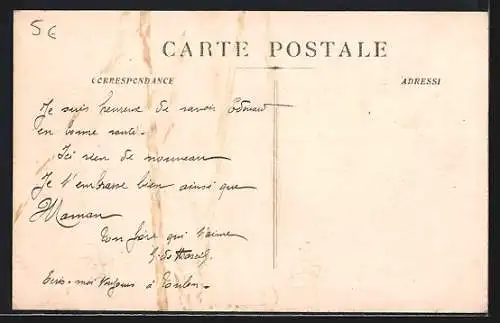 5€
CARTE POSTALE
CORRESPONDANCE
ADRESSE
Je suis heureux de savoir Edouard
en bonne santé.
Ici rien de nouveau
Je t'embrasse bien ainsi que
Maman
Ton frère qui t'aime
Ecris-moi toujours à Toulon.